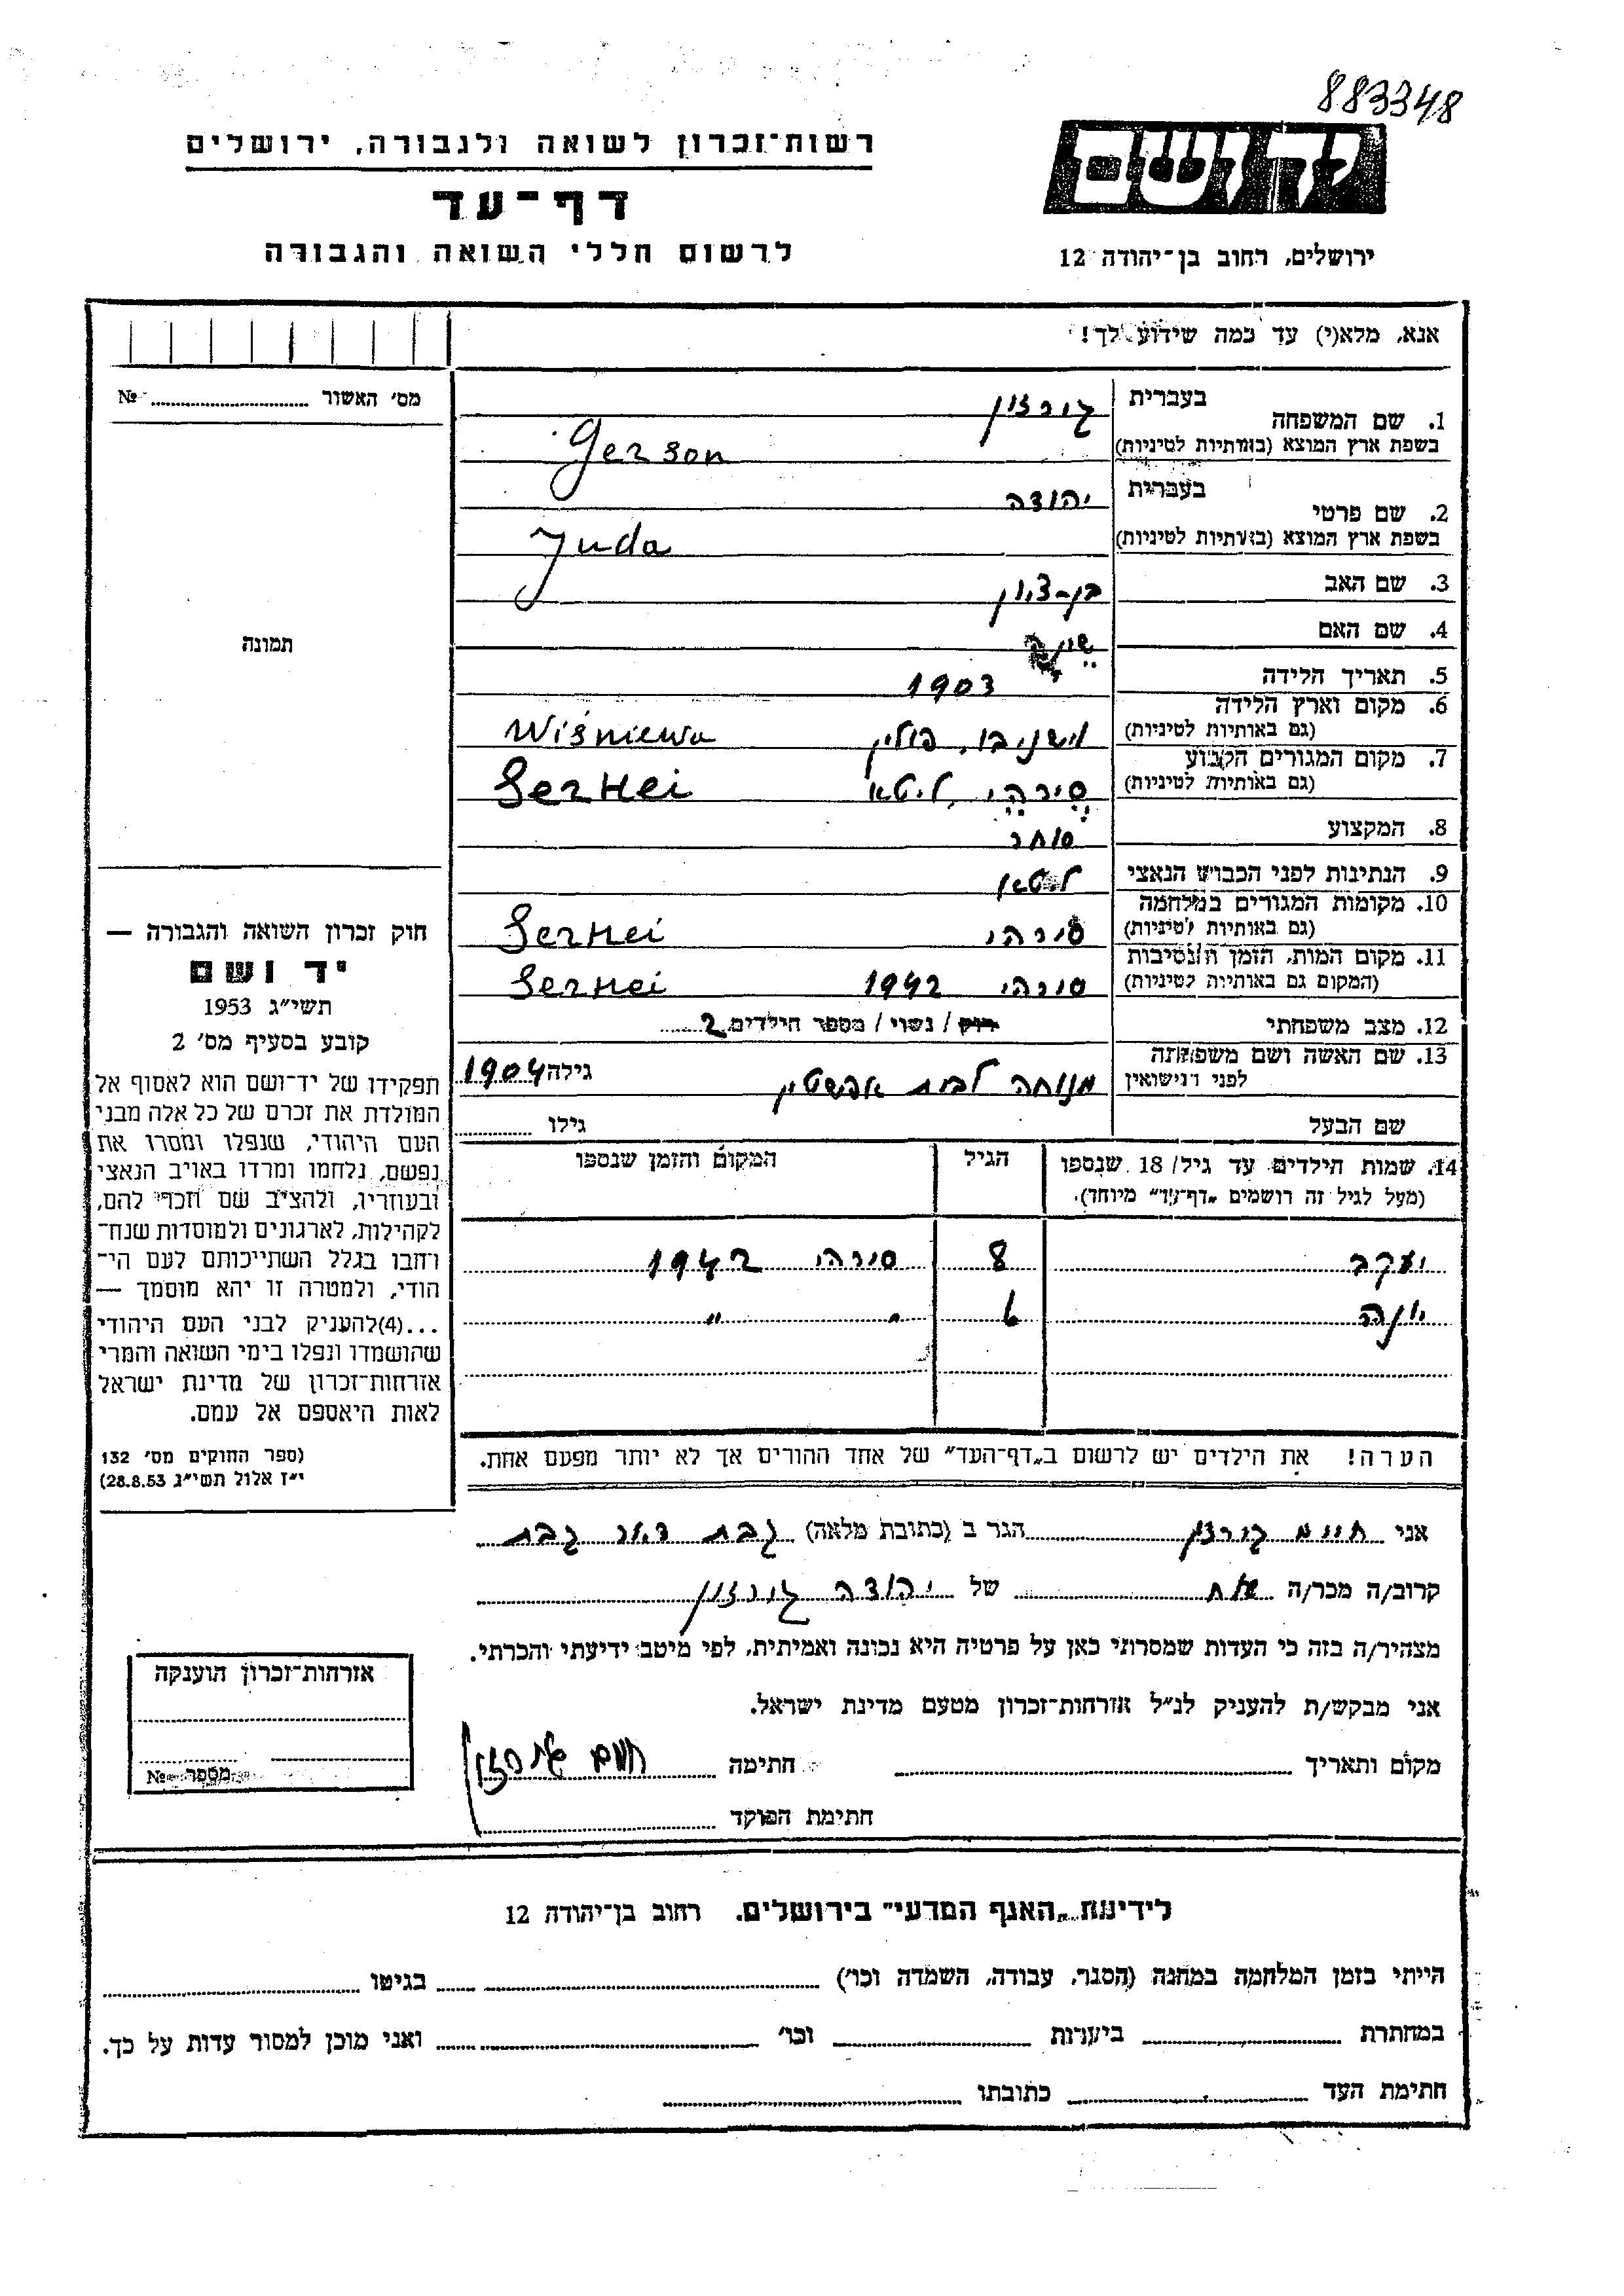 883348
יד ושם
ירושלים, רחוב בן־יהודה 12
רשות־זכרון לשואה ולגבורה, ירושלים
דף־עד
לרשום חללי השואה והגבורה
אנא, מלא(י) עד כמה שידוע לך!
מס׳ האשור № 
1. שם המשפחה בעברית גורזון
בשפת ארץ המוצא (באותיות לטיניות) Gerson
2. שם פרטי בעברית יהודה
בשפת ארץ המוצא (באותיות לטיניות) Juda
3. שם האב בן-ציון
4. שם האם
5. תאריך הלידה 1903
6. מקום וארץ הלידה
(גם באותיות לטיניות) וישניבו, פולין Wiśniewa
7. מקום המגורים הקבוע
(גם באותיות לטיניות) סירהי, ליטא Serhei
8. המקצוע סוחר
9. הנתינות לפני הכבוש הנאצי ליטא
10. מקומות המגורים במלחמה
(גם באותיות לטיניות) סירהי Serhei
11. מקום המות, הזמן והנסיבות
(המקום גם באותיות לטיניות) סירהי 1942 Serhei
12. מצב משפחתי רוק / נשוי / מספר הילדים 2
13. שם האשה ושם משפחתה
לפני הנישואין מנוחה לבית אפשטין גילה 1904
שם הבעל גילו
14. שמות הילדים עד גיל 18 שנספו
(מעל לגיל זה רושמים „דף־עד״ מיוחד).
הגיל
המקום והזמן שנספו
יעקב 8 סירהי 1942
יונה 6 " "
הערה! את הילדים יש לרשום ב„דף־העד״ של אחד ההורים אך לא יותר מפעם אחת.
תמונה
חוק זכרון השואה והגבורה —
יד ושם
תשי״ג 1953
קובע בסעיף מס׳ 2
תפקידו של יד־ושם הוא לאסוף אל
המולדת את זכרם של כל אלה מבני
העם היהודי, שנפלו ומסרו את
נפשם, נלחמו ומרדו באויב הנאצי
ובעוזריו, ולהציב שם וזכר להם,
לקהילות, לארגונים ולמוסדות שנח־
רחבו בגלל השתייכותם לעם הי־
הודי, ולמטרה זו יהא מוסמך —
...(4)להעניק לבני העם היהודי
שהושמדו ונפלו בימי השואה והמרי
אזרחות־זכרון של מדינת ישראל
לאות היאספם אל עמם.
(ספר החוקים מס׳ 132
י״ז אלול תשי״ג 28.8.53)
אני חיים גורזון הגר ב (כתובת מלאה) גבת דואר גבת
קרוב/ה מכר/ה אח של יהודה גורזון
מצהיר/ה בזה כי העדות שמסרתי כאן על פרטיה היא נכונה ואמיתית, לפי מיטב ידיעתי והכרתי.
אני מבקש/ת להעניק לנ״ל אזרחות־זכרון מטעם מדינת ישראל.
מקום ותאריך חתימה חיים גורזון
חתימת הפוקד
אזרחות־זכרון הוענקה
מספר №
לידיעת „האגף המדעי״ בירושלים. רחוב בן־יהודה 12
הייתי בזמן המלחמה במחנה (הסגר, עבודה, השמדה וכו׳) בגיטו
במחתרת ביערות וכו׳ ואני מוכן למסור עדות על כך.
חתימת העד כתובתו